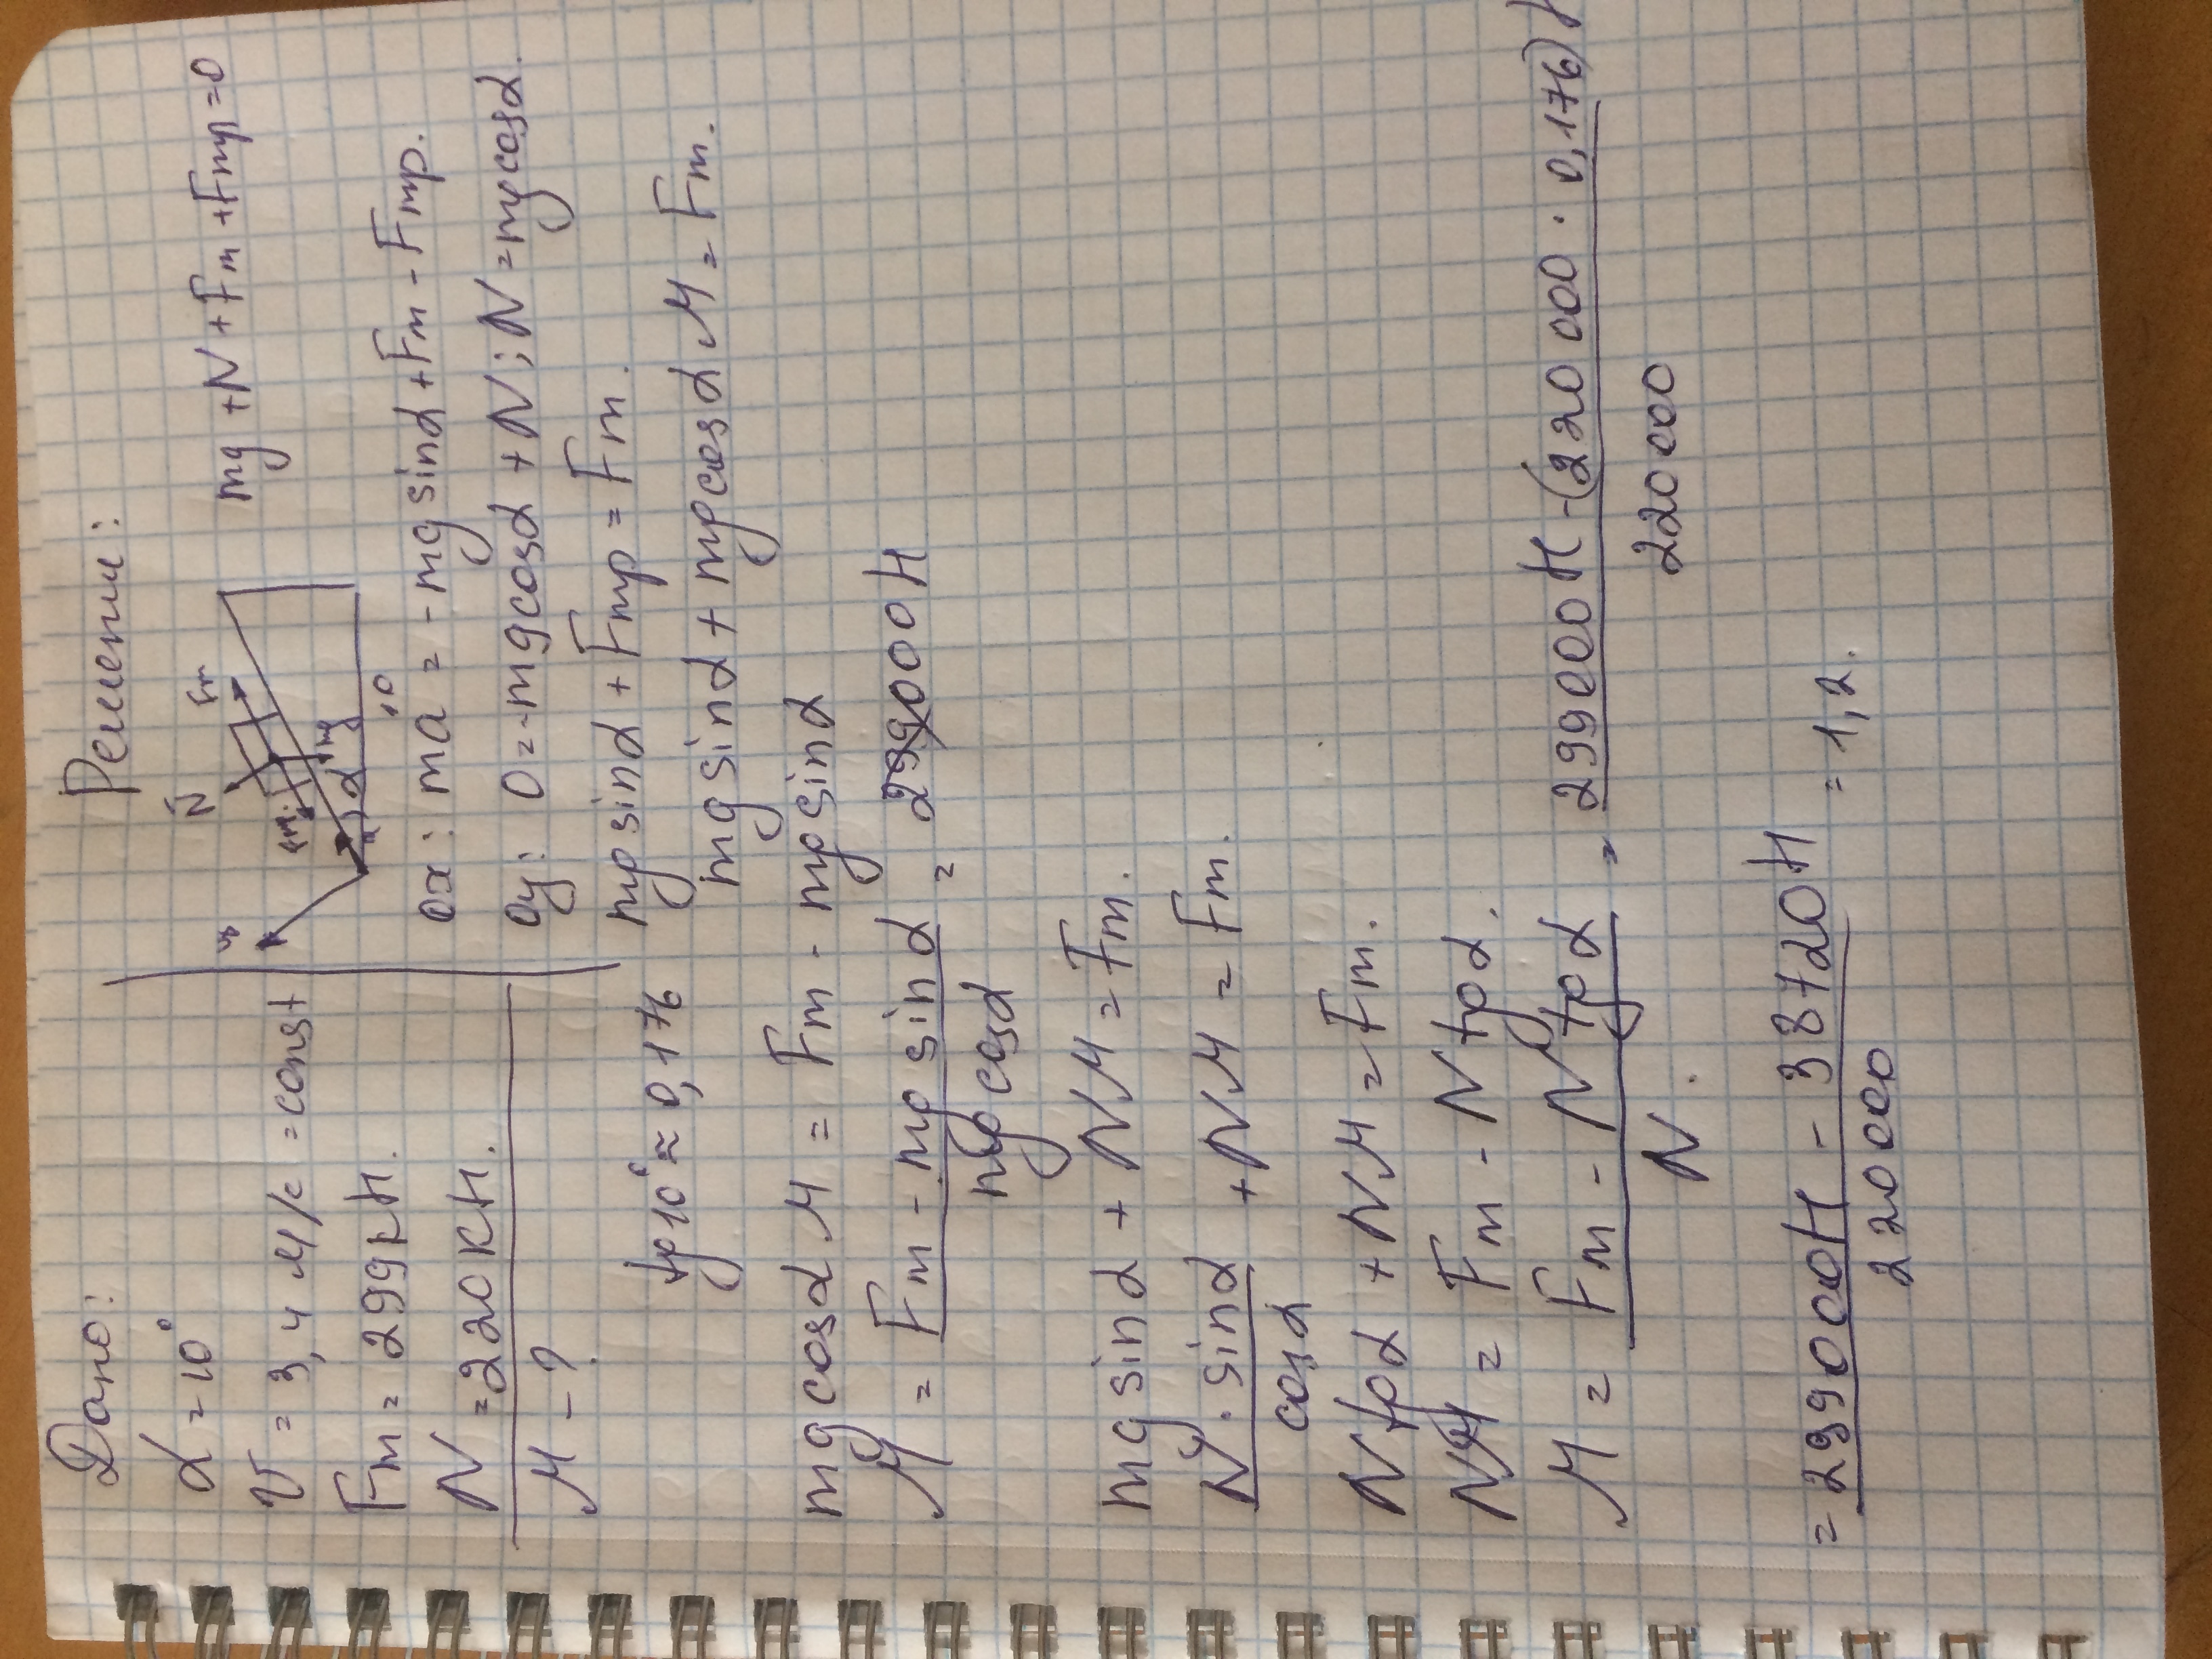 Дано:
α = 10°
V = 3,4 м/с = const
Fт = 299кН.
N = 220кН.
μ - ?
tg10° ≈ 0,176
Решение:
N̄
Fт
mg
α
x
y
mg + N + Fт + Fтр = 0
ox: ma = -mg sinα + Fт - Fтр.
oy: 0 = -mg cosα + N; N = mg cosα.
mg sinα + Fтр = Fт.
mg sinα + mg cosα μ = Fт.
mg cosα μ = Fт - mg sinα
μ = Fт - mg sinα / mg cosα = 299000Н
mg sinα + Nμ = Fт.
N · sinα / cosα + Nμ = Fт.
N tgα + Nμ = Fт.
Nμ = Fт - N tgα.
μ = Fт - N tgα / N = 299000Н - (220000 · 0,176) / 220000
= 299000Н - 38720Н / 220000 = 1,2.